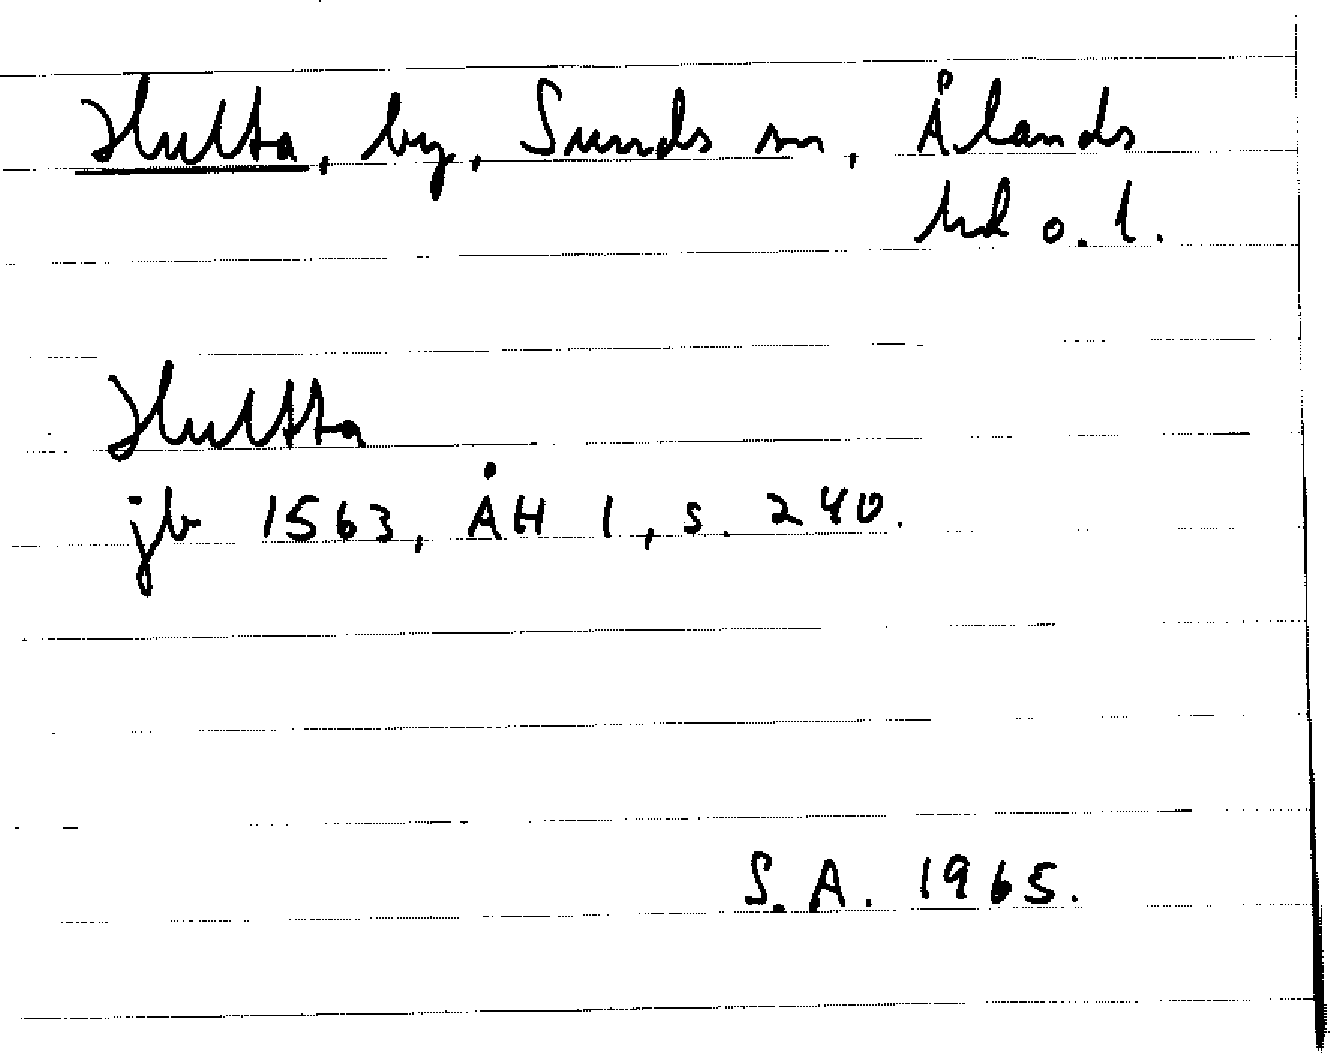 Hulta, by, Sunds sn, Ålands
hd o. l.
Hultta
jb 1563, ÅH 1, s. 240.
S. A. 1965.